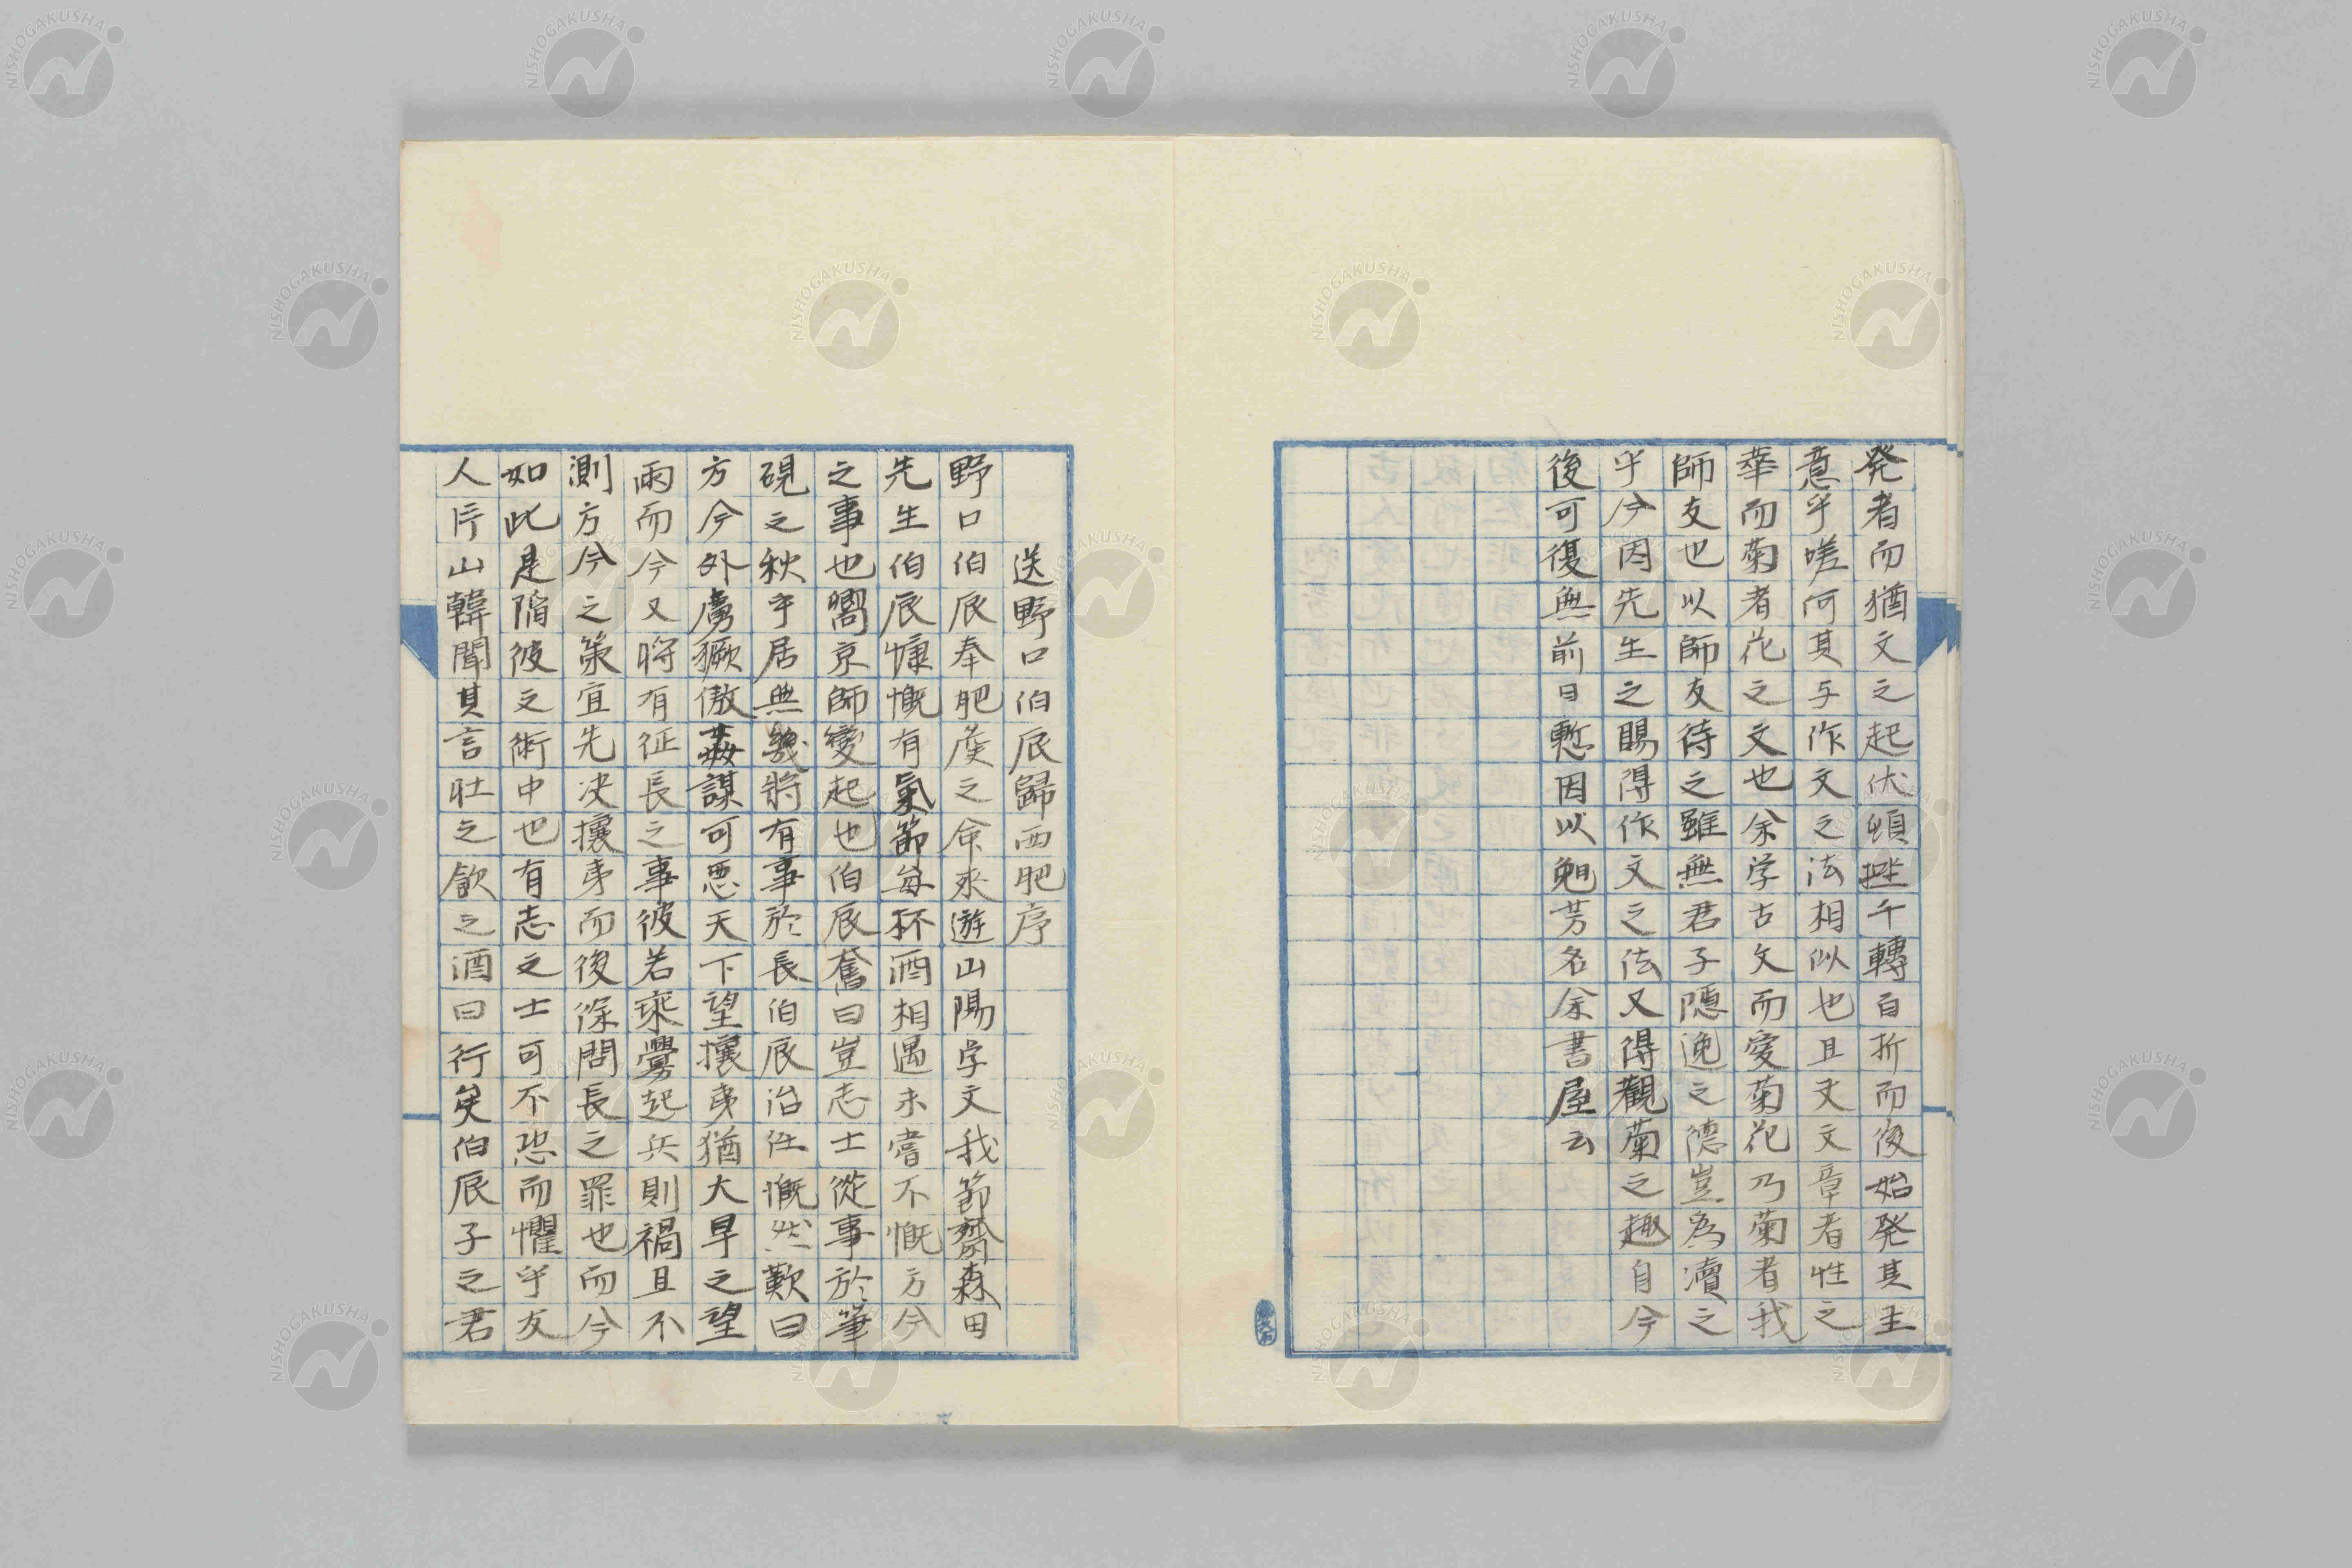 発者而猶文之起伏頓挫千轉百折而後始発其主
意乎嗟何其与作文之法相似也且夫文章者性之
華而菊者花之文也余学古文而愛菊花乃菊者我
師友也以師友待之雖無君子隠逸之徳豈為瀆之
乎今因先生之賜得作文之法又得觀菊之趣自今
後可復無前日慙因以勉芳名余書屋云
送野口伯辰歸西肥序
野口伯辰奉肥矦之命来遊山陽学文我節齋森田
先生伯辰慷慨有氣節毎杯酒相遇未嘗不慨方今
之事也嚮京師變起也伯辰奮曰豈志士從事於筆
硯之秋乎居無幾將有事於長伯辰治任慨然歎曰
方今外虜獗傲姦謀可悪天下望攘夷猶大旱之望
雨而今又将有征長之事彼若乘釁起兵則禍且不
測方今之策宜先决攘夷而後徐問長之罪也而今
如此是陥彼之術中也有志之士可不恐而懼乎友
人片山韓聞其言壮之飲之酒曰行矣伯辰子之君